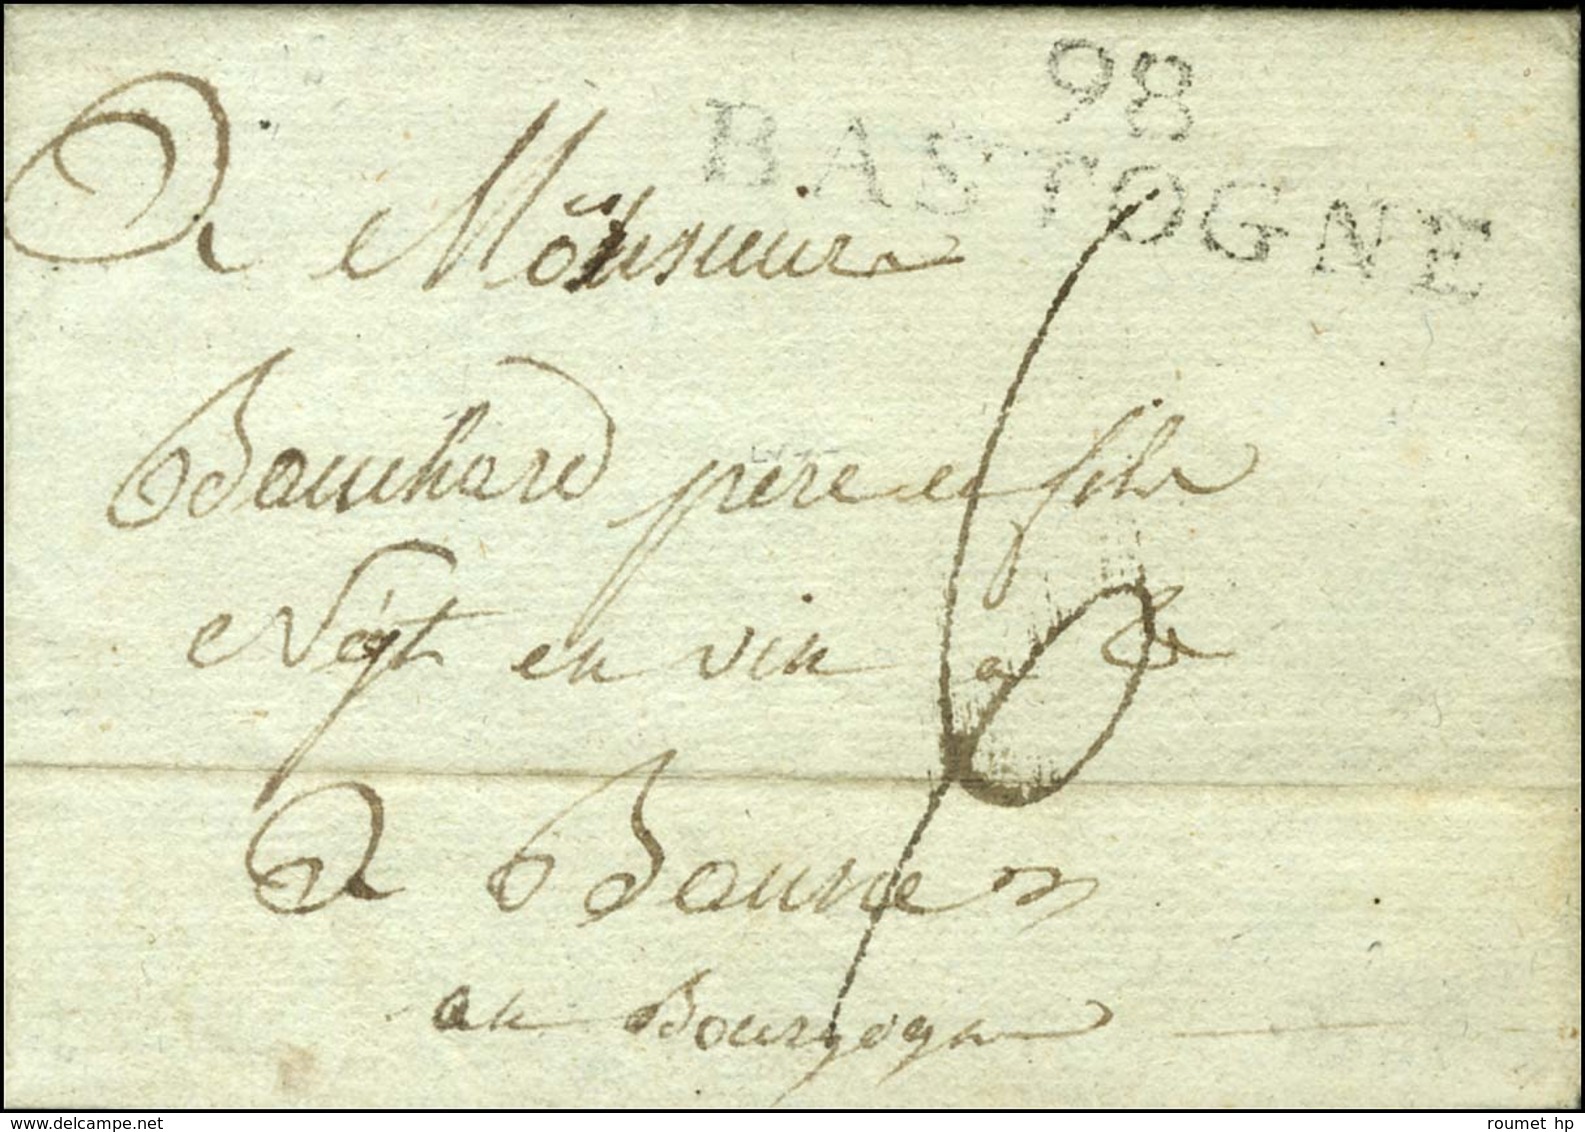 98
BASTOGNE
A Monsieur
Bouchard père et fils
Négt en vin a &
A Baune
en Bourgogne
roumet hp